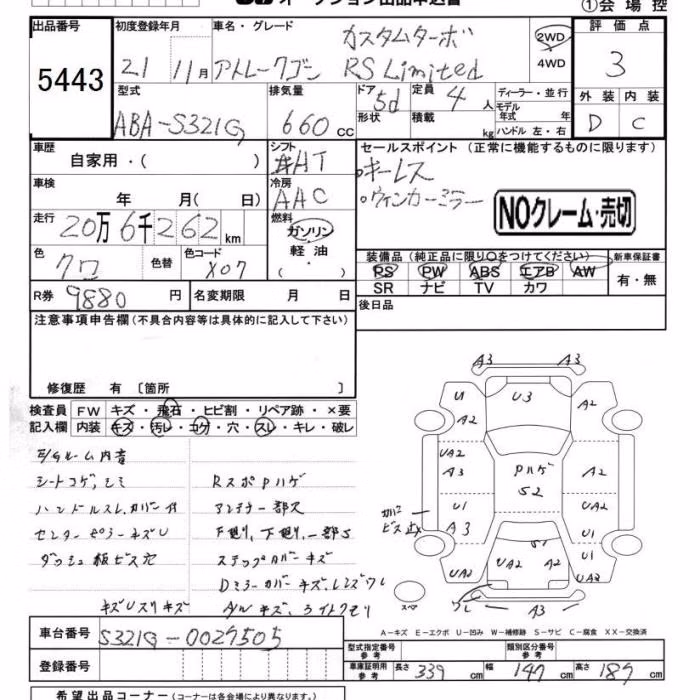 オークション出品申込書
①会場控
出品番号 5443
初度登録年月 21 11月
車名・グレード アトレーワゴン カスタムターボ RS Limited
2WD
4WD
評価点 3
型式 ABA-S321G
排気量 660 CC
ドア 5d
形状
定員 4人
積載 kg
ディーラー・並行
モデル年式 年
ハンドル 左・右
外装 D
内装 C
車歴 自家用・( )
シフト AT
セールスポイント (正常に機能するものに限ります)
・キーレス
・ウィンカーミラー
NOクレーム・売切
車検 年 月( 日)
冷房 AAC
走行 20万6千262km
燃料 ガソリン
軽油
・
( )
色 クロ 色替
色コード X07
装備品 (純正品に限り○をつけてください)
PS PW ABS エアB AW
SR ナビ TV カワ
新車保証書
有・無
R券 9880円
名変期限 月 日
後日品
注意事項申告欄(不具合内容等は具体的に記入して下さい)
修復歴 有〔箇所 〕
検査員記入欄
FW キズ・飛石・ヒビ割・リペア跡・×要
内装 キズ・汚レ・コゲ・穴・スレ・キレ・破レ
E/Gルーム内音
シートコゲ、シミ
ハンドルスレ、カバー付
センターピラーキズU
ダッシュ板ビス穴
キズUスリキズ
RスポPハゲ
アンテナ一部欠
下廻り、下廻り、一部S
ステップカバーキズ
Dミラーカバーキズ、レンズワレ
A/Wキズ、ライトクモリ
A3 A3
U U3 A2
A2
UA2
A3 Pハゲ A2
S2
U1 UA2
カバービス止
A3 S1 U1
UA2 UA2 A2 U1
UA2
スペア ワレ A3
A-キズ E-エクボ U-凹み W-補修跡 S-サビ C-腐食 XX-交換済
車台番号 S321G-0027505
登録番号
型式指定番号 参考
類別区分番号 参考
車庫証明用 参考 長さ 339cm 幅 147cm 高さ 187cm
希望出品コーナー(コーナーは各会場により異なります)